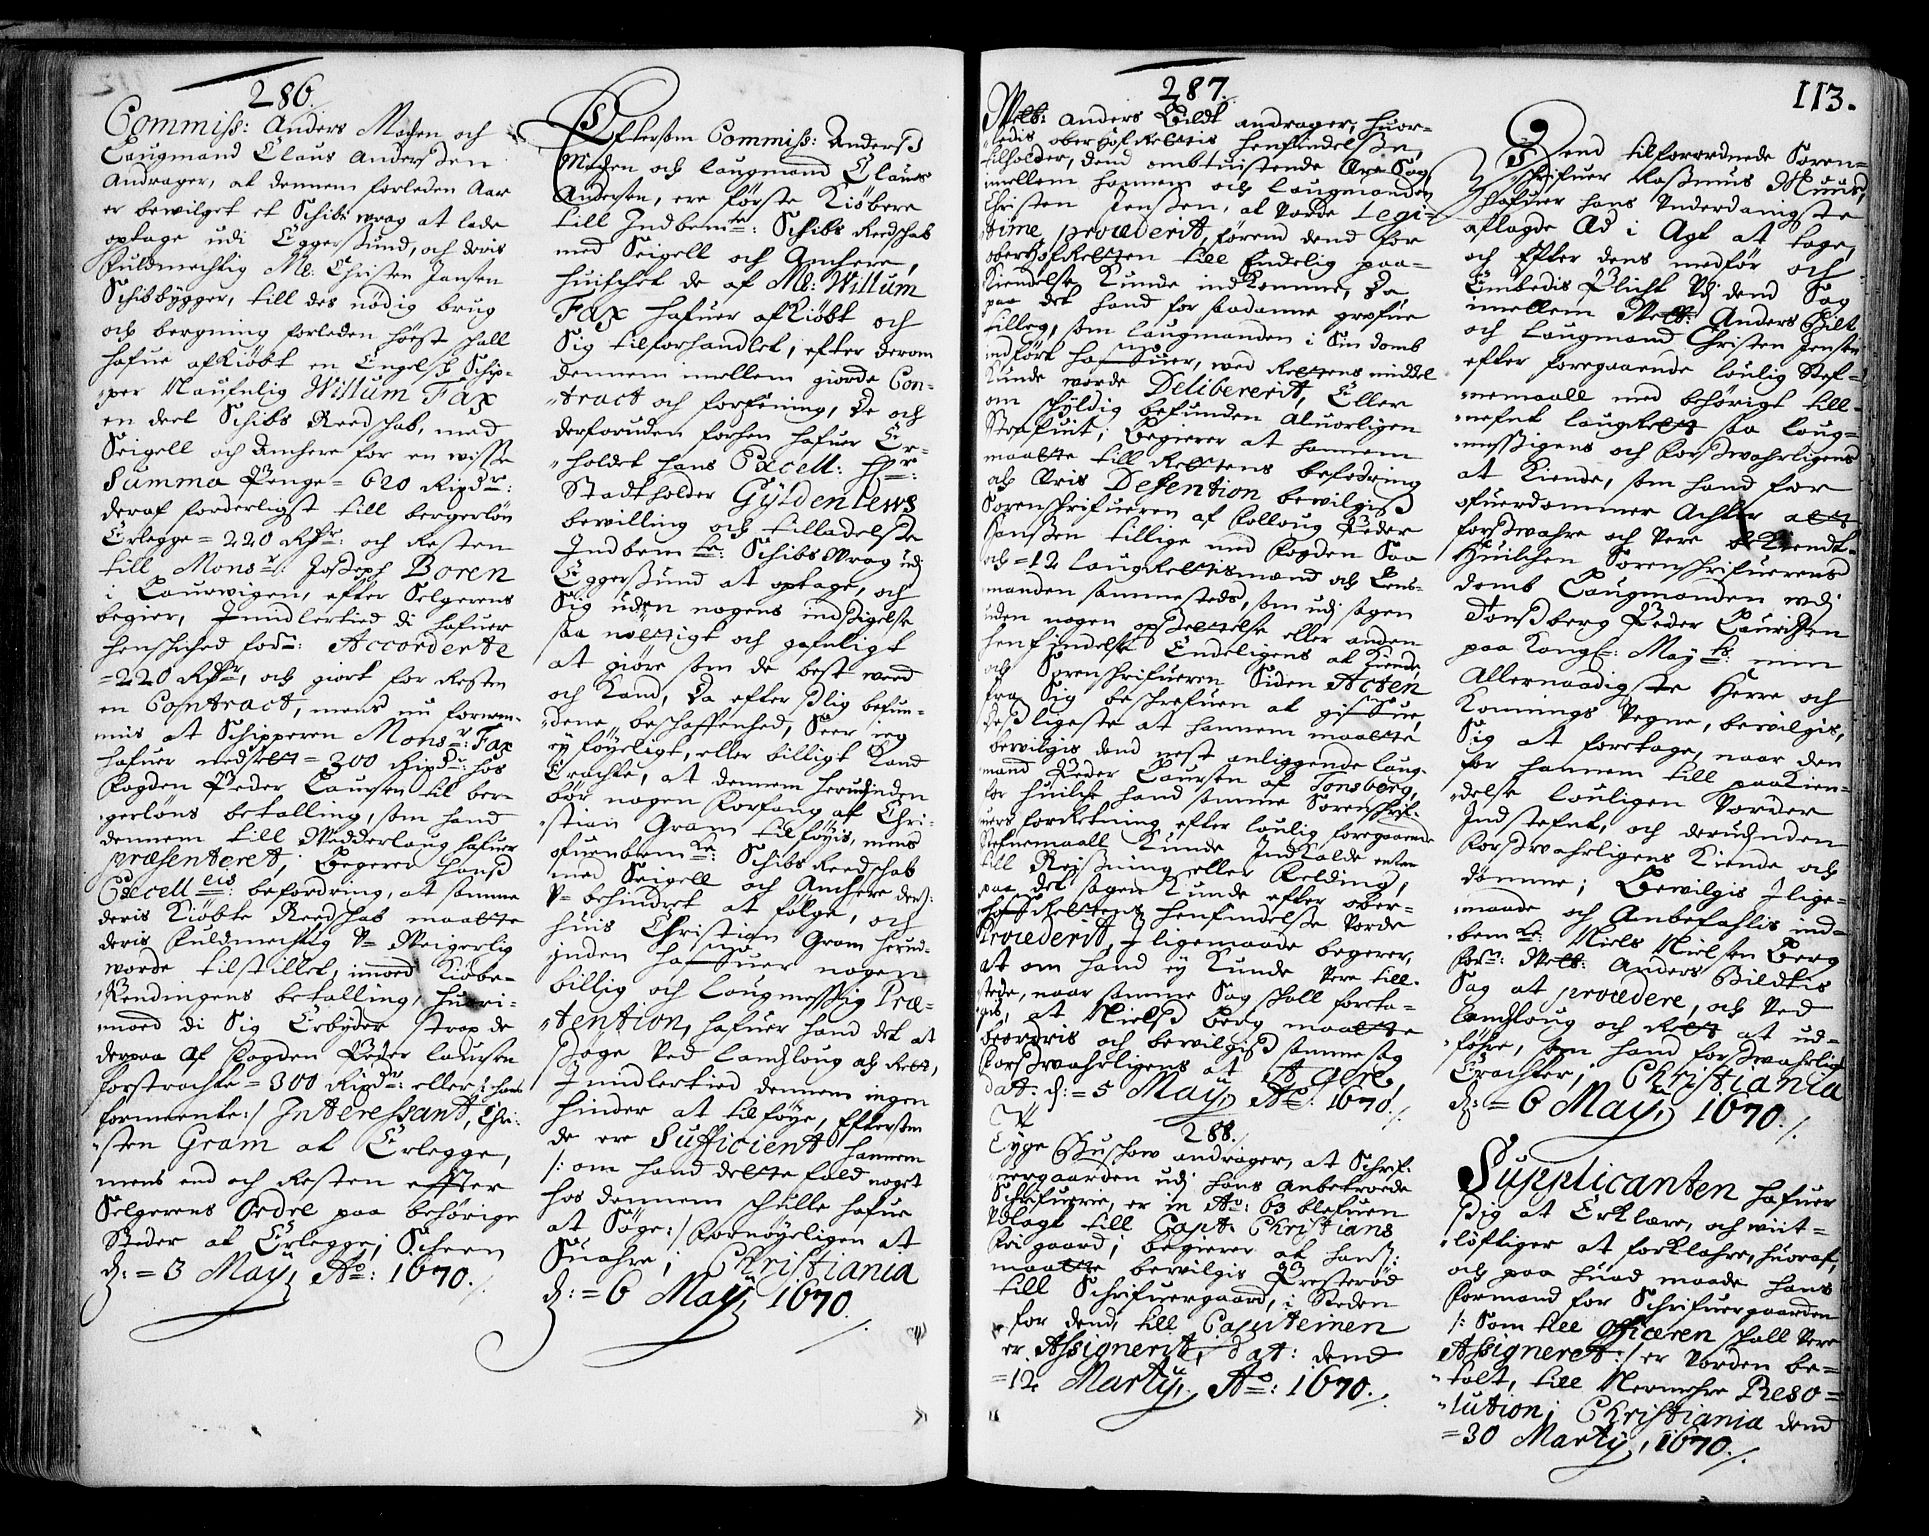 286.
Commiss: Anders Madsen och
Laugmand Claus Anderssen
Andrager, at dennem forleden Aar
er bewilget et Schibs wrag at lade
optage udi Eggerssund, och deris
fuldmechtig Mr: Christen Jansen
Schibbygger, till des nødig brug
och bergning forleden høest schall
hafue afkiøbt en Engelsk Schip-
per Naufnlig Willum Fax
en deel Schibs Reedschab, med
Seigell och Anchere for en wisse
Summa Penge = 620 Rixdr:
deraf forderligst till bergerløn
Erlegge = 220 Rdr: och Resten
till Monsr: Joseph Boren
i Laurwigen, efter Selgerens
begier, Imidlertied di hafuer
henschiched fodn: Accorderte
= 220 Rdr, och giort for Resten
en Contract, mens nu fornem-
mis at Schipperen Monsr: Fax
hafuer nedsett = 300 Rixdr: hos
Fogden Peder Laursen til ber-
gerløns betalling, som hand
dennem till Wedderlaug hafuer
præsenteret, Begerer hans
Excelleis: befordring, at samme
deris Kiøbte Reedschab maatte
deris fuldmechtig V= Weigerlig
worde tilstillet, imod Kiøbe-
Sendingens betalling, huori-
moed di Sig Erbyder strax de
derpaa af Fogden Peder laursen
forstrachte = 300 Rixdr: eller /: hans
formeente :/ Interessant, Chri-
sten Gram at Erlegge,
mens end och Resten effter
Selgerens Ordre paa behørige
Steder at Erlegge; Scheen
d: = 3 Maij Ao: 1670./.
Eftersom Commiss: Anders
Madsen och Laugmand Claus
Andersen, ere første Kiøbere
till Indbemte: Schibs Reedschab
med Seigell och Anchere,
huilchet de af Mr: Willum
Fax hafuer afkiøbt och
Sig tilforhandlet, efter derom
dennem imellem giorde Con-
tract och forsening, de och
derforuden forhen hafuer Er-
holdet hans Excell: Hr:
Stadtholder Gyldenlews
bewilling och tilladelse
Indbemte: Schibs Wrag udi
Eggerssund at optage, och
Sig uden nogens indsigelse
saa nøttigt och gafnligt
at giøre som de best weed
och Kand, Da efter slig befun-
dene beschaffenhed, Seer ieg
ey føyeligt, eller billigt Kand
Erachte, at dennem herudinden
bør nogen Forfang af Chri-
stian Gram tilføyis, mens
ofuenbemte: Schibs Reedschab
med Seigell och Anchere der:
V= behindret at følge, och
huis Christian Gram herud-
inden hafuer nogen
billig och Laugmessig Præ-
tention, hafuer hand det at
søge Ved Landzloug och Rett,
Imidlertied dennem ingen
hinder at tilføye, Eftersom
de ere Sufficient hannem
/: om hand dette fald noget
hos dennem schulle hafue
at Søge :/ Fornøyeligen at
Suahre; Christiania
d: = 6 Maij 1670./.
287.
113.
Welb: Anders Bildt andrager, huor-
ledis oberhofRettis henfindelse,
tilholder, dend omtuistende Sag
imellem hannem och Laugmanden
Christen Jensen, at Vorde Legi-
time procederit, førend dend for
oberhofRetten till Endelig paa-
Kiendelse Kunde indkomme, Da
paa det hand for saadanne grofue
tilleg, som Laugmanden i Sin domb
indført hafuer, wed Rettens middel
Kunde worde Delibererit, Eller
om schyldig befunden Aluorligen
Straffuit; Begierer at hannem
maatte till Rettens befodring
och Vris Defention bewilgis
Sorenschrifueren af Folloug Peder
Hanssen tillige med Fogden Saa
och = 12 Laugrettismand och Lens-
manden sammesteds, som udi sagen
uden nogen opsettelse eller anden
henfindelse Endeligens at Kiende,
och Sorenschrifueren Siden Acten
fra Sig beschrefuen at gifue,
Desligeste at hannem maatte
bewilgis dend nest anliggende Laug-
mand Peder Laursen af Tonsberg,
for huilche hand samme Sorenschrif-
uers forretning efter loulig foregaaende
Stefnemaall Kunde Indkalde enten
till Rejssning eller Felding,
paa det sagen Kunde efter ober-
hofRettens henfindelse Vorde
Procederit, I ligemaade begerer,
at om hand ey Kunde Vere till-
stede, naar samme Sag schall foreta-
gis, at Niels Berg maatte
beordris och bewilgis samme sag
forswahrligens at Agere,
dat: d: = 5 Maij Ao: 1670./.
288.
Tyge Buschow andrager, at Schrif-
uergaarden udi hans Anbetroede
Schrifuerie, er in Ao: 63 blefuen
Vdlagt till Capt: Christians
Frigaard; begierer at hans:
maatte bewilgis Presterød
till Schrifuergaard, i Steden
for dend, till Capitemen
er Assignerit, dat: dend
= 12 Martij Ao: 1670./.
Dend tilforordnede Soren-
schrifuer Rasmus Munch,
Hafuer hans Vnderdanigste
aflagde Æd i Agt at tage,
och Efter dens medfør och
Embedis Plicht Vdi dend Sag
imellem Welb: Anders Bilt
och Laugmand Christen Jensen
efter foregaaende loulig Stef-
nemaall med behørigt till-
nefnt LaugRett saa Laug-
messigens och Forswahrligens
at Kiende, som hand for
ofuerdommer Achter alt
forswahre och Vere bekiendt.
Huilchen Sorenschrifuerens
domb Laugmanden udi
Tonsberg Peder Lauritzen
paa Kongl: Mayts: min
Allernaadigste Herre och
Konnings Vegne, bewilgis,
Sig at foretage, naar den
for hannem till paakien-
delse louligen Vorder
Indstefnt, och derudinden
Forswahrligens Kiende och
dømme; Bewilgis I lige-
maade och Anbefahlis ind-
bemte: Niels Nielsen Berg
forn: Welb: Anders Bildtis
Sag at procedere, och Ved
Landzloug och Rett at ud-
føhre, som hand forswahrligst
Erachter; Christiania
d: = 6 Maij 1670./.
Supplicanten hafuer
sig at Erklære, och wiit-
løftiger at forklahre, huoraf,
och paa huad maade hans
Formand for Schrifuergaarden
/: Som till Officeren schall Vere
Assigneret :/ er Vorden be-
talt, till Nermehre Reso-
lution; Christiania dend
= 30 Martij 1670./.